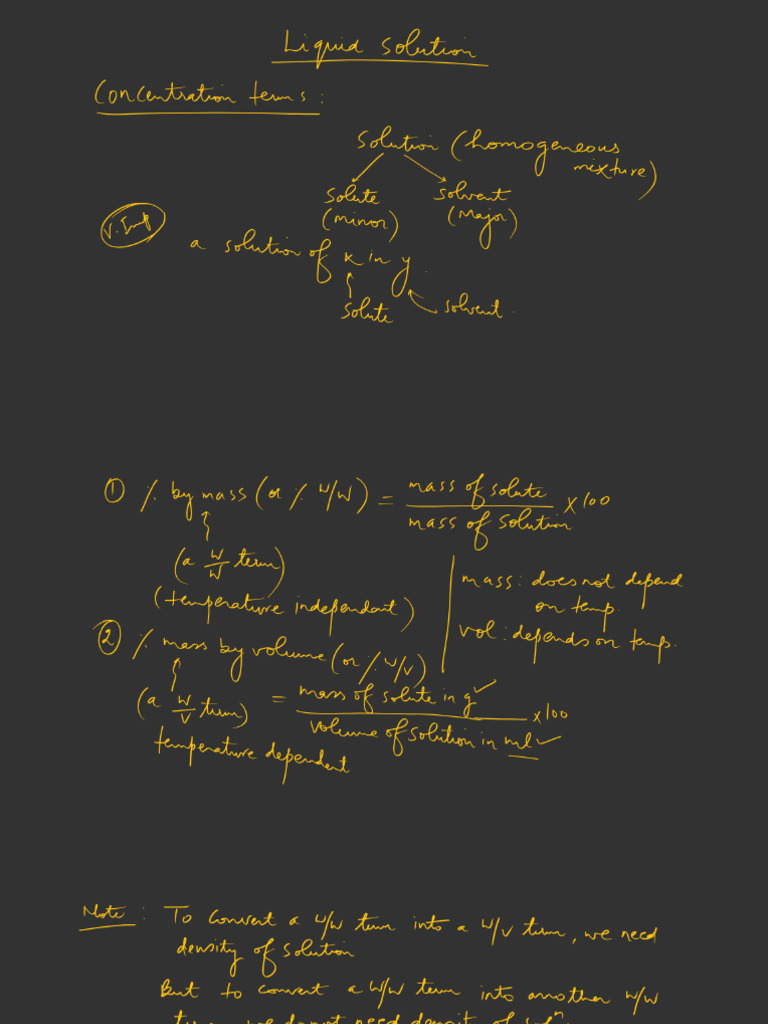 Liquid Solution
Concentration terms:
Solution (homogeneous
mixture)
Solute Solvent
(minor) (Major)
V. Imp
a solution of x in y
Solute solvent.
① % by mass (or % W/W) = mass of solute / mass of solution × 100
(a W/W term)
(temperature independant)
mass: does not depend
on temp.
vol: depends on temp.
② % mass by volume (or % W/V)
= mass of solute in g / volume of solution in ml × 100
(a W/V term)
temperature dependent
Note: To convert a W/W term into a W/V term, we need
density of solution
But to convert a W/W term into another W/W
term we do not need density of solⁿ